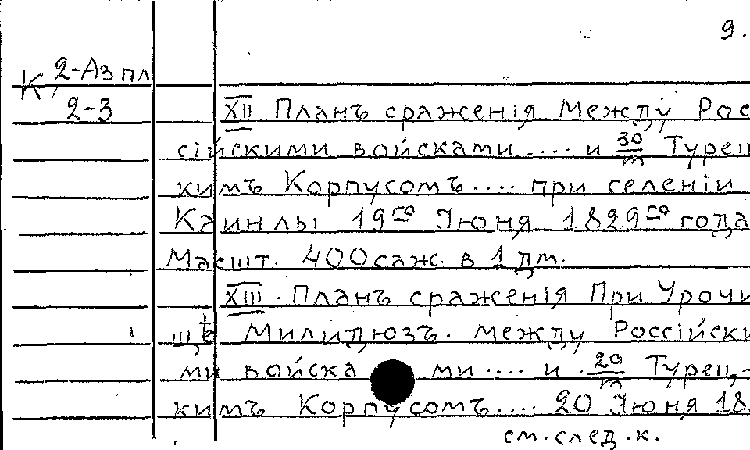 9.
К 2-Аз пл
2-3
XII Планъ сраженія Между Рос
сійскими войсками .... и 30/m Турец
кимъ Корпусомъ .... при селеніи
Каинлы 19го Іюня 1829го года
Масшт. 400 саж. в 1 дм.
XIII. Планъ сраженія При Урочи
щѣ Милидюзъ. между Россійски
ми войска ми .... и 20/m Турец-
кимъ Корпусомъ .... 20 Іюня 18
см. след. к.